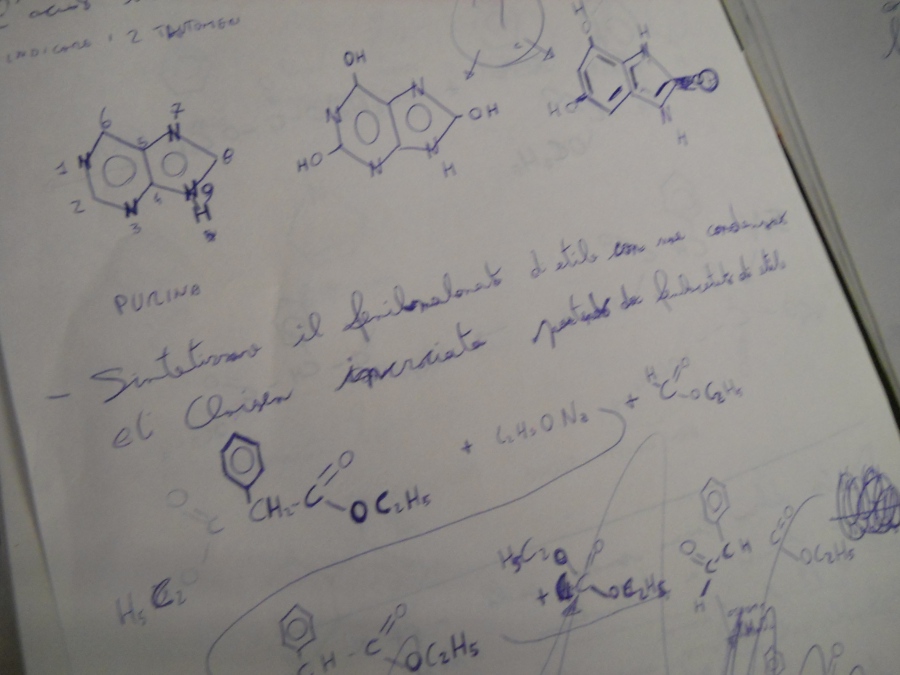 INDICARE I 2 TAUTOMERI
OH
N N
OH
HO N N
H
H
O H
N
HO N O
H
6 7
1 N 5 N
8
2 N 4 N 9
3 H
PURINA
- Sintetizzare il fenilmalonato di etile con una condensazione
di Claisen incrociata partendo da fenilacetato di etile
CH2-C O
OC2H5
+ C2H5ONa
+ H C O
OC2H5
O C
H5C2O
H5C2O O
+ C OC2H5
CH - C O
OC2H5
O C CH C O
OC2H5
H